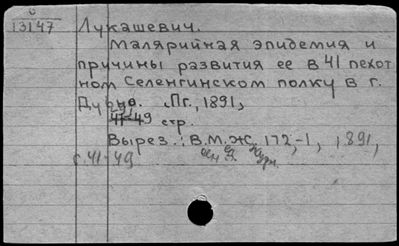 13147 Лукашевич.
Малярийная эпидемия и
причины развития ее в 41 пехот
ном Селенгинском полку в г.
Дубно. Пг., 1891,
41-49 стр.
Вырез.: В.М.Ж. 172,-1, 1891,
с. 41-49